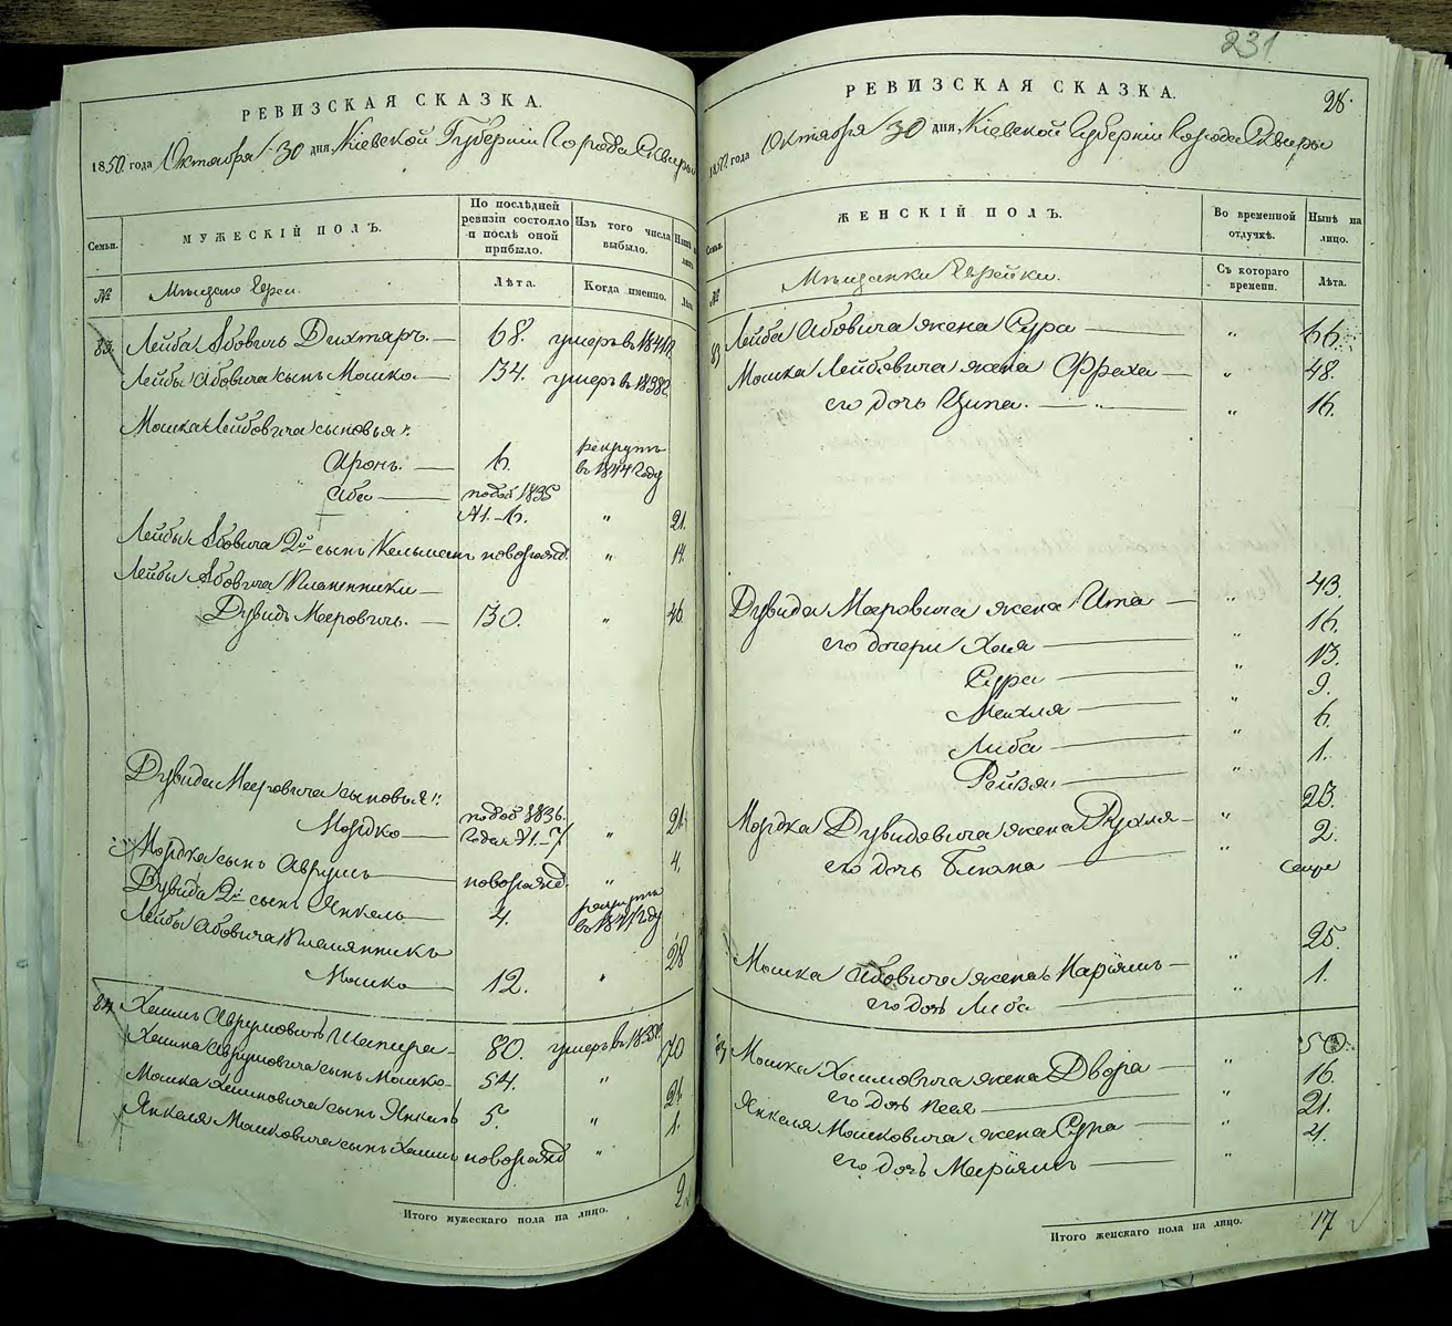 231
РЕВИЗСКАЯ СКАЗКА.
1850. года Октября 30 дня, Кіевской Губерніи Города Сквиры
Семьи.
МУЖЕСКІЙ ПОЛЪ.
По послѣдней ревизіи состояло и послѣ оной прибыло.
Изъ того числа выбыло.
№
Мѣщане Евреи.
Лѣта.
Когда именно.
83. Лейба Абовичъ Дихтяръ. 68. умеръ въ
Лейбы Абовича сынъ Мошко 34. умеръ въ 1838
Мошка Лейбовича сыновья:
Аронъ. 6. рекрутъ въ 1844 году
Аба 1835
" 21.
Лейбы Абовича 2й сынъ Кельманъ новорожд. " 14.
Лейбы Абовича Племенники
Дувидъ Мееровичъ. 30. " 46
Дувида Мееровича сыновья:
Мордко 1836. года " 21.
Мордка сынъ Аврумъ новорожд. " 4.
Дувида 2й сынъ Янкель 4. рекрутъ въ году
Лейбы Абовича Племянникъ
Мошко 12. " 28
84 Хаимъ Аврумовичъ Шапира 80. умеръ въ
Хаима Аврумовича сынъ Мошко 54. " 70
Мошка Хаимовича сынъ Янкель 5. " 21
Янкеля Мошковича сынъ Хаимъ новорожд " 1.
Итого мужескаго пола на лицо.
РЕВИЗСКАЯ СКАЗКА.
28.
1850 года Октября 30 дня, Кіевской Губерніи Города Сквиры
Семьи.
ЖЕНСКІЙ ПОЛЪ.
Во временной отлучкѣ.
Нынѣ на лицо.
№
Мѣщанки Еврейки.
Съ котораго времени.
Лѣта.
83 Лейба Абовича жена Сура " 66.
Мошка Лейбовича жена Фрежа " 48.
его дочь Ципа. " 16.
Дувида Мееровича жена Ита " 43.
его дочери Хая " 16.
Сура " 13.
Мехля " 9.
Либа " 6.
Рейзя " 1.
Мордка Дувидовича жена Рухля " 23.
его дочь Блюма " 2.
Мошка Абовича жена Маріямъ " 25.
его дочь Либа " 1.
Мошка Хаимовича жена Двора " 50.
его дочь Песя " 16.
Янкеля Мошковича жена Сура " 21.
его дочь Маріямъ "
Итого женскаго пола на лицо. 17